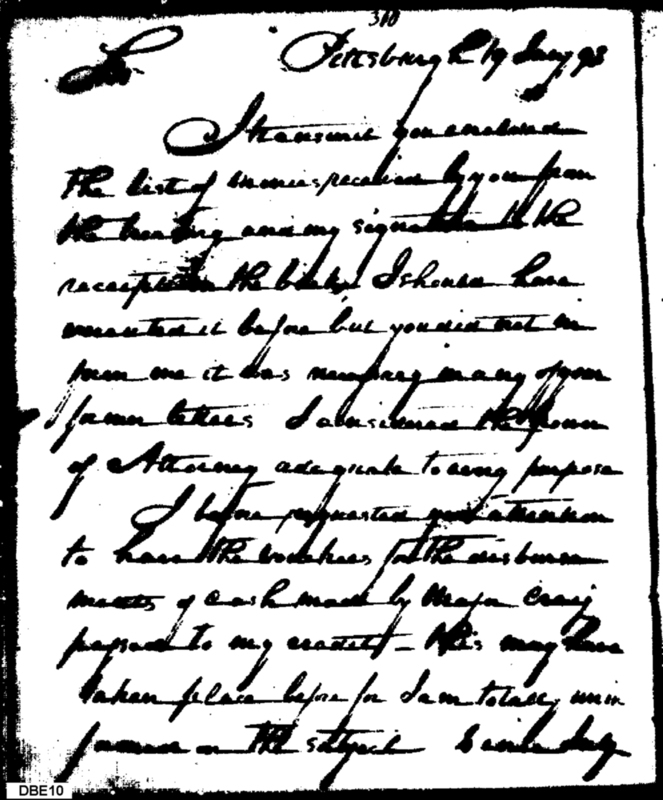 310
Sir Pittsburgh 19 Jany 98
I transmit you enclosed
the list of monies received by you from
the treasury and my signature to the
receipts in the books, I should have
executed it before but you did not in
form me it was necessary in any of your
former letters I considered the power
of Attorney adequate to every purpose
I before requested your attention
to have the vouchers for the disburse
ments of cash made by Major Craig
passed to my credit - this may have
taken place before for I am totally unin
formed on the subject Since July
DBE10